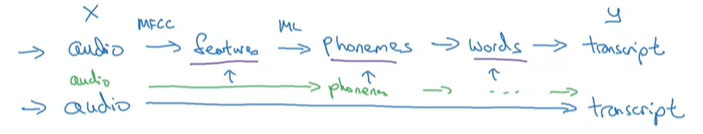 X MFCC ML y
→ audio → features → phonemes → words → transcript
audio → phonemes → ... →
→ audio → transcript